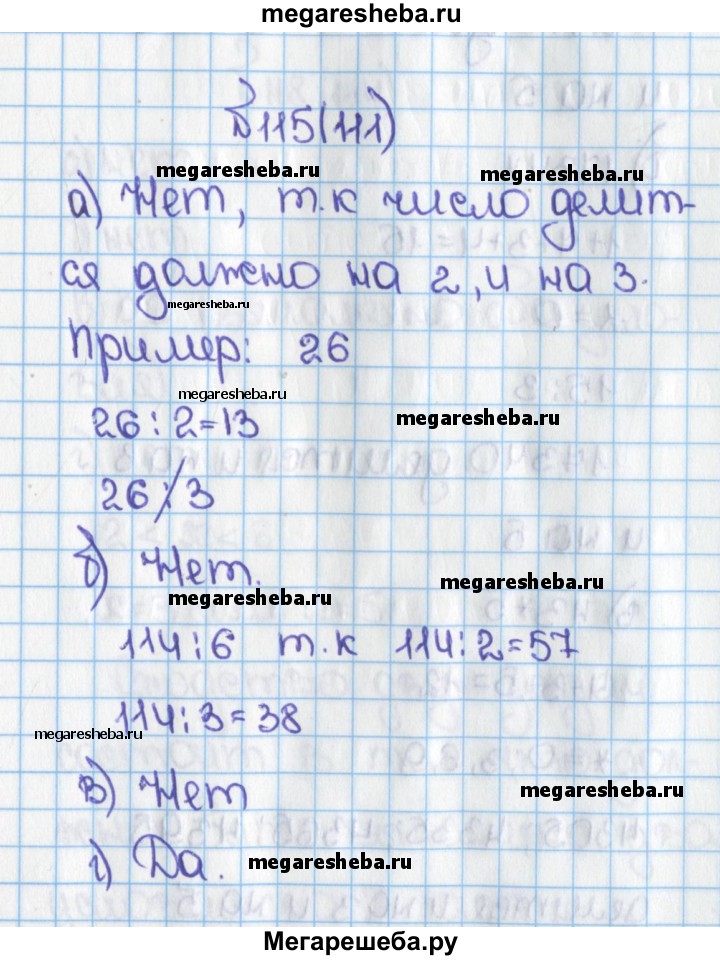 megaresheba.ru
№115(111)
megaresheba.ru
megaresheba.ru
а) Нет, т.к число делит-
ся должно на 2, и на 3.
megaresheba.ru
Пример: 26
megaresheba.ru
26:2=13
megaresheba.ru
26 ⁒ 3
б) Нет.
megaresheba.ru
megaresheba.ru
114:6 т.к 114:2=57
114:3=38
megaresheba.ru
в) Нет
megaresheba.ru
г) Да.
megaresheba.ru
Мегарешеба.ру